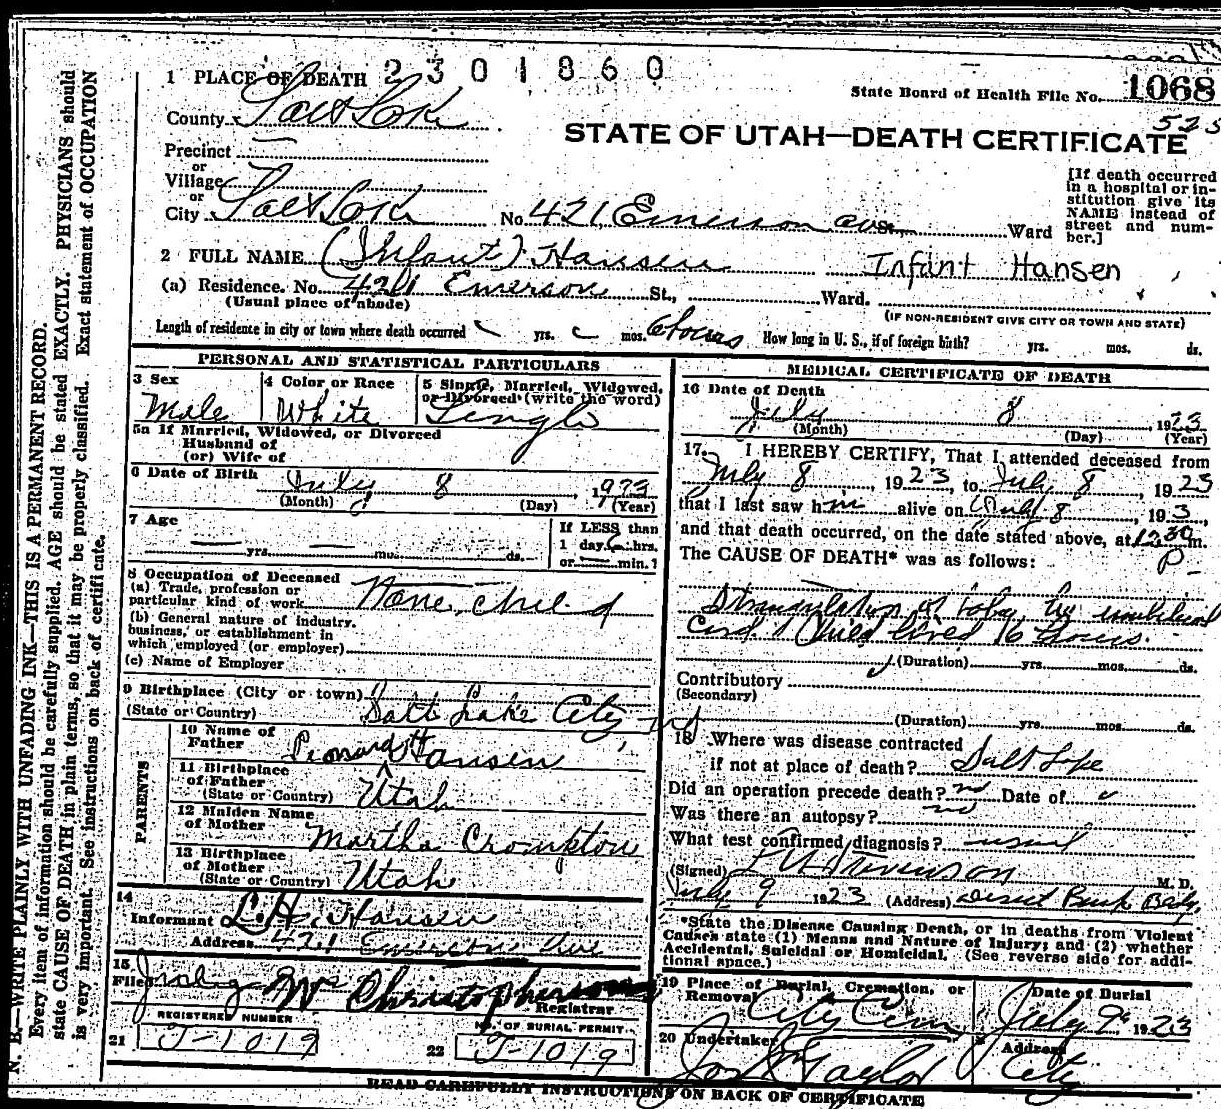 2301860
1 PLACE OF DEATH
State Board of Health File No. 1068
County Salt Lake
525
STATE OF UTAH—DEATH CERTIFICATE
Precinct
or
Village
or
City Salt Lake No. 421 Emerson ave St., Ward
[If death occurred in a hospital or institution give its NAME instead of street and number.]
2 FULL NAME (Infant) Hansen Infant Hansen
(a) Residence. No. 421 Emerson St., Ward.
(Usual place of abode) (IF NON-RESIDENT GIVE CITY OR TOWN AND STATE)
Length of residence in city or town where death occurred yrs. mos. 6 hours How long in U. S., if of foreign birth? yrs. mos. ds.
PERSONAL AND STATISTICAL PARTICULARS
3 Sex 4 Color or Race 5 Single, Married, Widowed, or Divorced (write the word)
Male White Single
5a If Married, Widowed, or Divorced
Husband of
(or) Wife of
6 Date of Birth July 8 1923
(Month) (Day) (Year)
7 Age If LESS than
yrs. mo. ds. 1 day 6 hrs.
or min.?
8 Occupation of Deceased
(a) Trade, profession or
particular kind of work None, child
(b) General nature of industry,
business, or establishment in
which employed (or employer)
(c) Name of Employer
9 Birthplace (City or town)
(State or Country) Salt Lake City
PARENTS
10 Name of
Father Leonard H Hansen
11 Birthplace
of Father
(State or Country) Utah
12 Maiden Name
of Mother Martha Crompton
13 Birthplace
of Mother
(State or Country) Utah
14
Informant L. H. Hansen
Address 421 Emerson Ave
15
Filed July 9 Christopherson
Registrar
REGISTERED NUMBER NO. OF BURIAL PERMIT
21 J-1019 22 J-1019
MEDICAL CERTIFICATE OF DEATH
16 Date of Death
July 8, 1923
(Month) (Day) (Year)
17. I HEREBY CERTIFY, That I attended deceased from
July 8, 1923, to July 8, 1923
that I last saw him alive on July 8, 193,
and that death occurred, on the date stated above, at 1230 m.
P
The CAUSE OF DEATH* was as follows:
Strangulation of baby by umbilical
Cord. Child lived 16 hours.
(Duration) yrs. mos. ds.
Contributory
(Secondary)
(Duration) yrs. mos. ds.
18 Where was disease contracted
if not at place of death? Salt Lake
Did an operation precede death? no Date of
Was there an autopsy? no
What test confirmed diagnosis? usual
(Signed) Stevenson M. D.
July 9 1923 (Address) Deseret Bank Bldg.
*State the Disease Causing Death, or in deaths from Violent
Causes state (1) Means and Nature of Injury; and (2) whether
Accidental, Suicidal or Homicidal. (See reverse side for addi-
tional space.)
19 Place of Burial, Cremation, or Date of Burial
Removal City Cem July 9 1923
20 Undertaker Address
Jos Wm Taylor City
READ CAREFULLY INSTRUCTIONS ON BACK OF CERTIFICATE
N. B.—WRITE PLAINLY WITH UNFADING INK—THIS IS A PERMANENT RECORD.
Every item of information should be carefully supplied. AGE should be stated EXACTLY. PHYSICIANS should
state CAUSE OF DEATH in plain terms, so that it may be properly classified. Exact statement of OCCUPATION
is very important. See instructions on back of certificate.